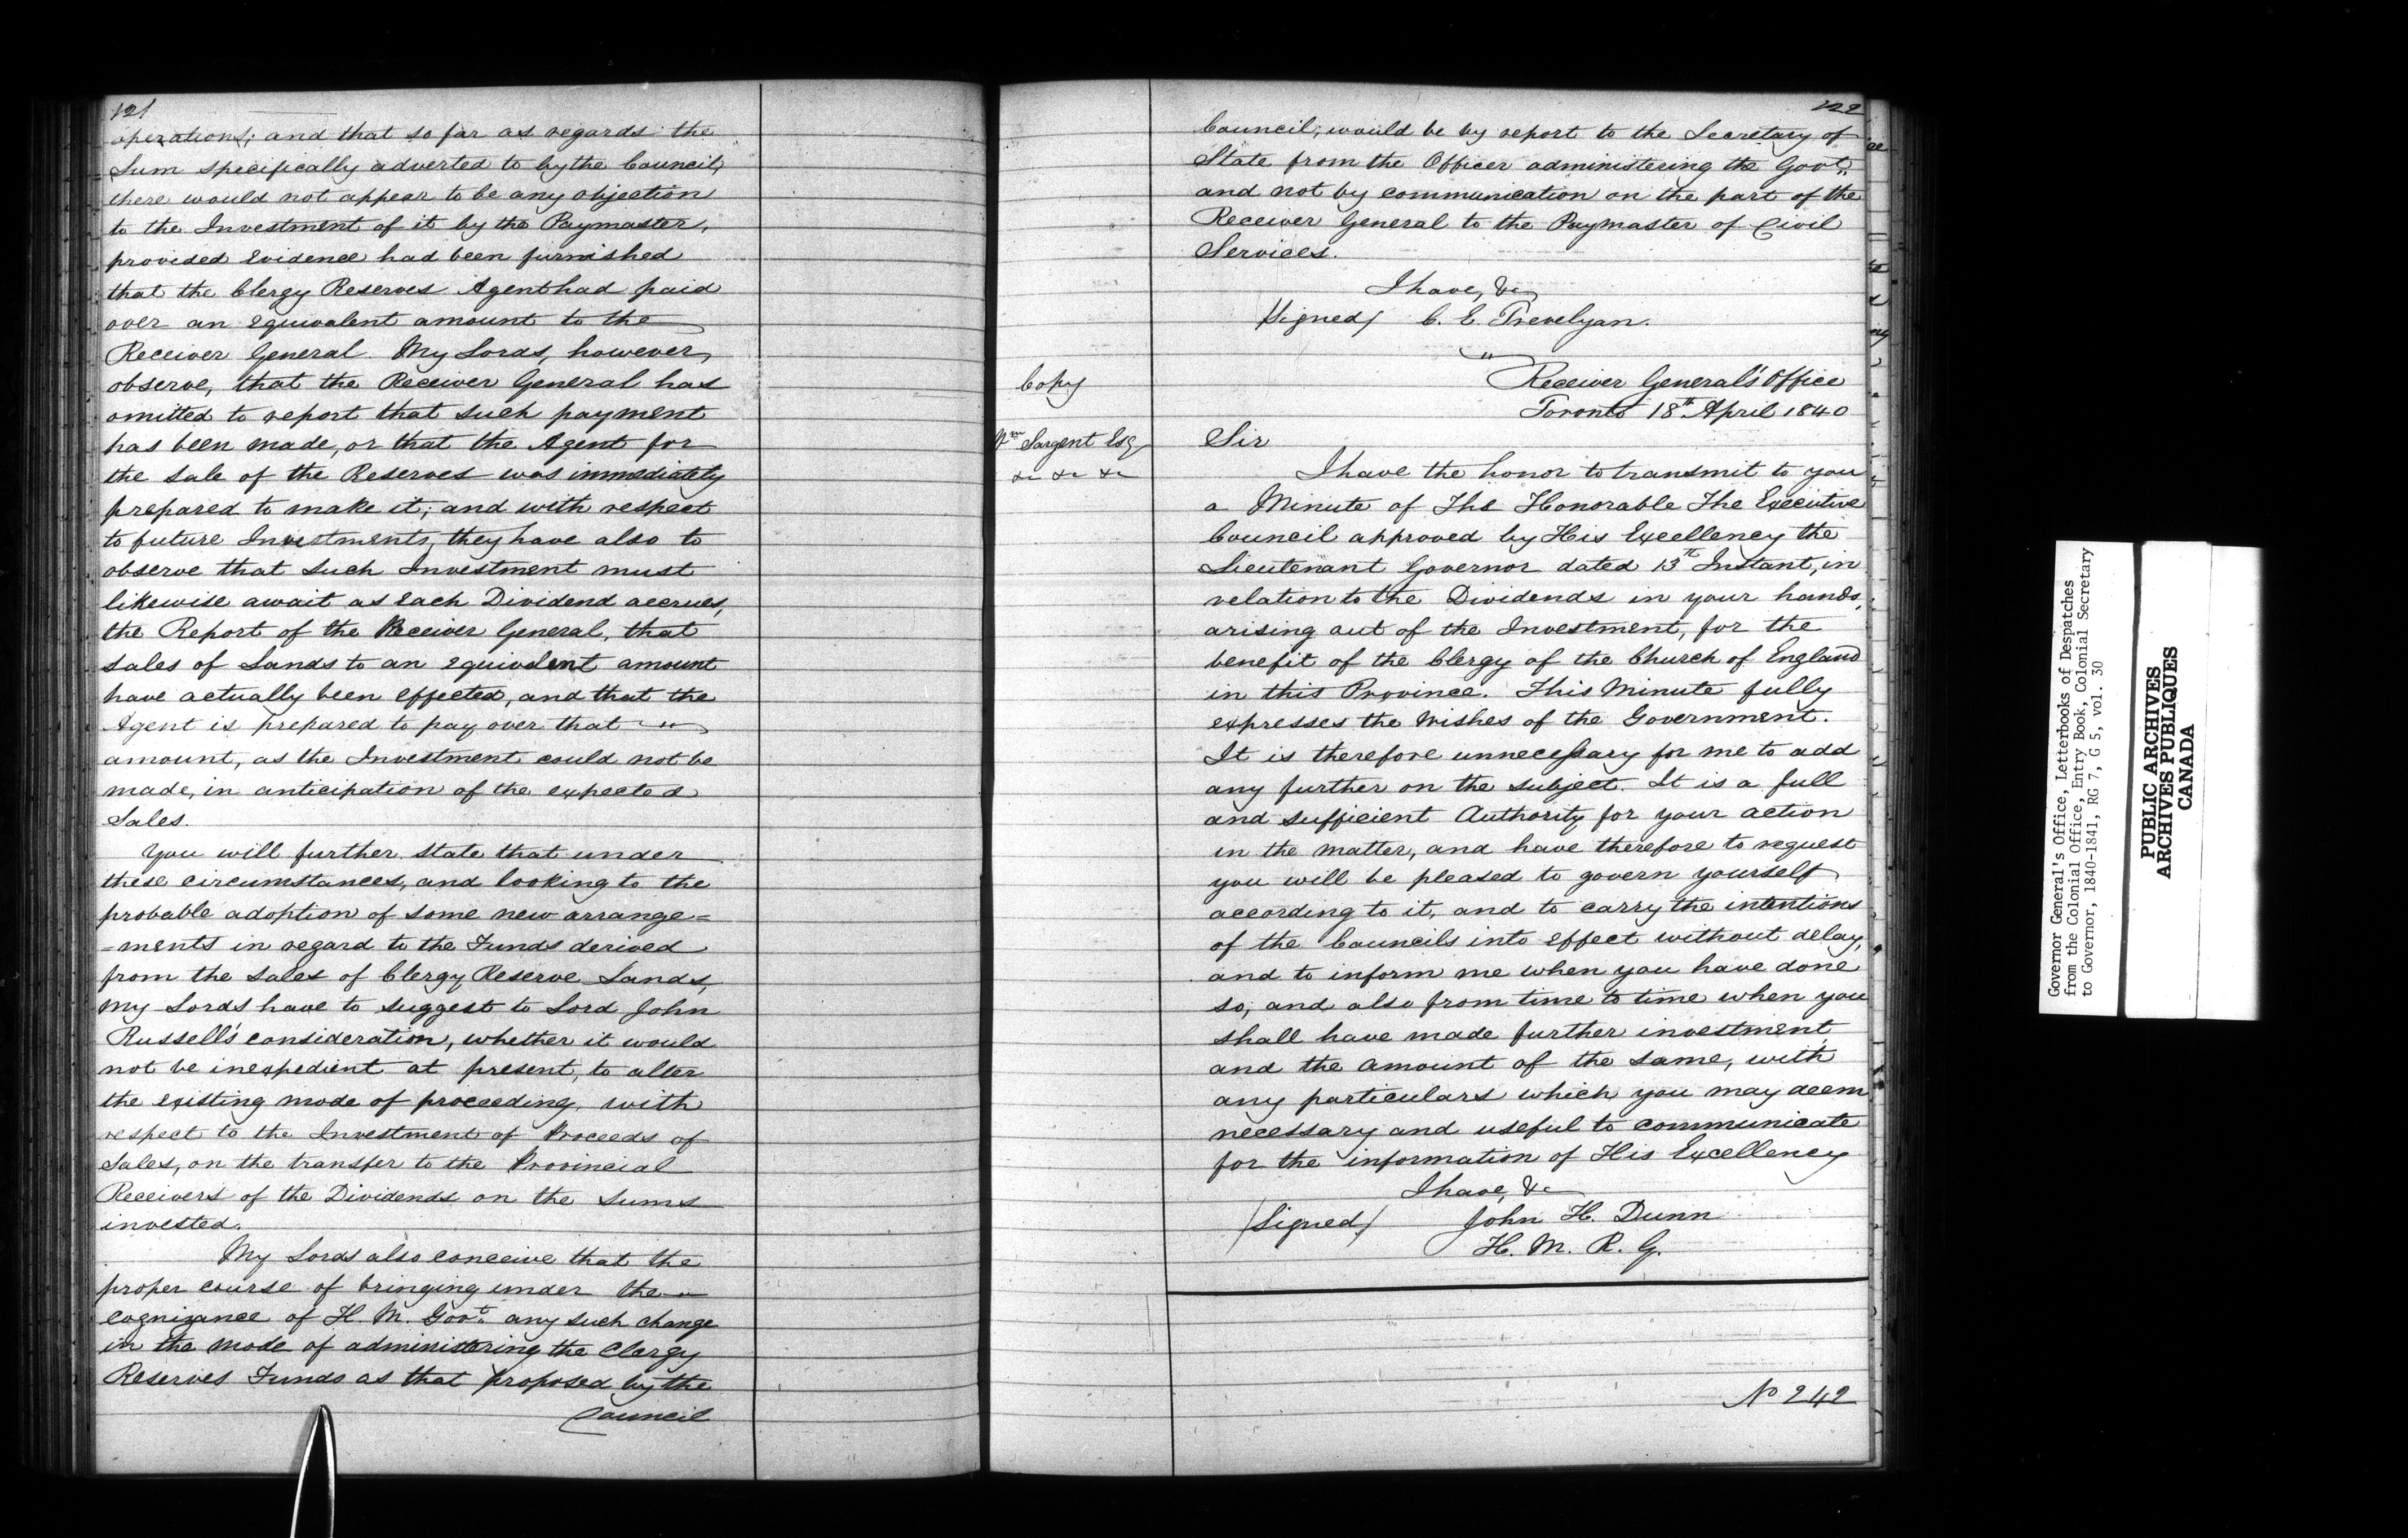 121
operations; and that so far as regards the
Sum specifically adverted to by the Council,
there would not appear to be any objection
to the Investment of it by the Paymaster,
provided Evidence had been furnished
that the Clergy Reserves Agent had paid
over an equivalent amount to the
Receiver General. My Lords, however,
observe, that the Receiver General has
omitted to report that such payment
has been made, or that the Agent for
the Sale of the Reserves was immediately
prepared to make it; and with respect
to future Investments, they have also to
observe that such Investment must
likewise await as each Dividend accrues,
the Report of the Receiver General, that
sales of Lands to an equivalent amount
have actually been effected, and that the
Agent is prepared to pay over that
amount, as the Investment could not be
made, in anticipation of the expected
Sales.
You will further state that under
these circumstances, and looking to the
probable adoption of some new arrange=
=ments in regard to the Funds derived
from the Sales of Clergy Reserve Lands,
My Lords have to suggest to Lord John
Russell's consideration, whether it would
not be inexpedient at present, to alter
the existing mode of proceeding, with
respect to the Investment of Proceeds of
Sales, on the transfer to the Provincial
Receivers of the Dividends on the Sums
invested.
My Lords also conceive that the
proper course of bringing under the
cognizance of H. M. Govt. any such change
in the mode of administering the Clergy
Reserves Funds as that proposed by the
Council
122
Council; would be by report to the Secretary of
State from the Officer administering the Govt.
and not by communication on the part of the
Receiver General to the Paymaster of Civil
Services.
I have, &c
/Signed/ C. E. Trevelyan.
Copy
Receiver General's Office
Toronto 18th April 1840
Wm Sargent Esq
&c &c &c
Sir
I have the honor to transmit to you
a Minute of The Honorable The Executive
Council approved by His Excellency the
Lieutenant Governor dated 13th Instant, in
relation to the Dividends in your hands,
arising out of the Investment, for the
benefit of the Clergy of the Church of England
in this Province. This Minute fully
expresses the Wishes of the Government.
It is therefore unnecessary for me to add
any further on the subject. It is a full
and sufficient Authority for your action
in the matter, and have therefore to request
you will be pleased to govern yourself
according to it, and to carry the intentions
of the Councils into effect without delay,
and to inform me when you have done
so, and also from time to time when you
shall have made further investment,
and the amount of the same, with
any particulars which you may deem
necessary and useful to communicate
for the information of His Excellency
I have, &c
/Signed/ John H. Dunn
H. M. R. G.
No 242
Governor General's Office, Letterbooks of Despatches
from the Colonial Office, Entry Book, Colonial Secretary
to Governor, 1840-1841, RG 7, G 5, vol. 30
PUBLIC ARCHIVES
ARCHIVES PUBLIQUES
CANADA